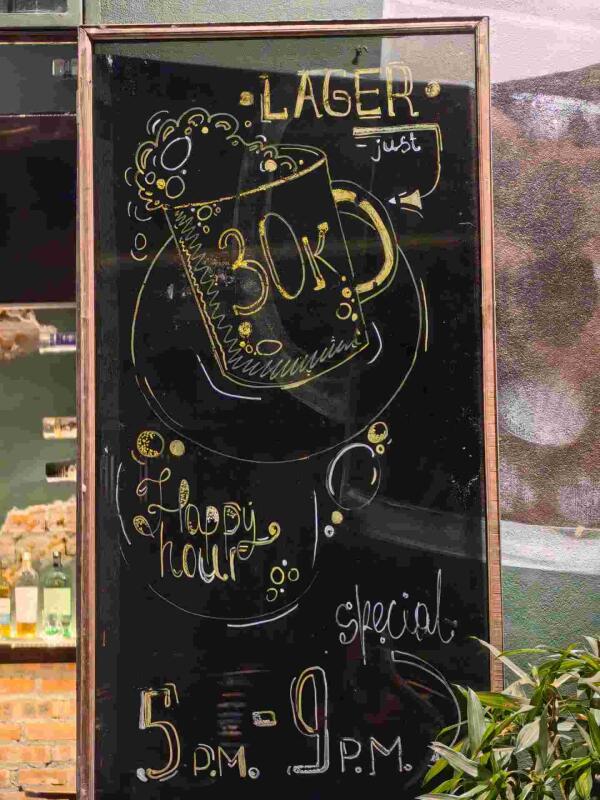 LAGER
- just
30K
Happy
hour
special
5 P.M. - 9 P.M.